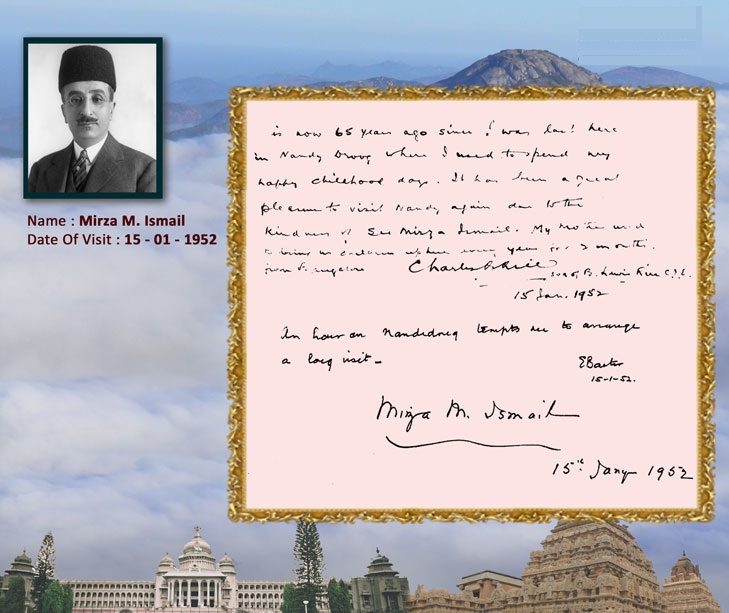 Name : Mirza M. Ismail
Date Of Visit : 15 - 01 - 1952
is now 65 years ago since I was last here
in Nandy Droog where I used to spend my
happy childhood days. It has been a great
pleasure to visit Nandy again due to the
kindness of Sir Mirza Ismail. My mother used
to bring us children up here every year for 2 months
from Bangalore Charles Rice son of B. Lewis Rice C.I.E.
15 Jan. 1952
An hour on Nandidroog tempts me to arrange
a long visit -
E Baxter
15-1-52.
Mirza M. Ismail
15th Jany 1952